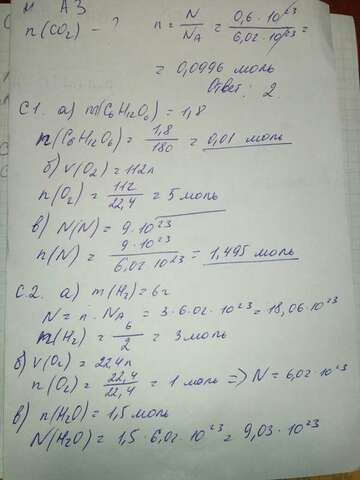 А3
n(CO₂) - ? n = N/Nₐ = 0,6·10²³/6,02·10²³ =
= 0,0996 моль
Ответ: 2.
С1. а) m(C₆H₁₂O₆) = 1,8
n(C₆H₁₂O₆) = 1,8/180 = 0,01 моль
б) V(O₂) = 112л
n(O₂) = 112/22,4 = 5 моль
в) N(N) = 9·10²³
n(N) = 9·10²³/6,02·10²³ = 1,495 моль
С.2. а) m(H₂) = 6г
N = n·Nₐ = 3·6,02·10²³ = 18,06·10²³
n(H₂) = 6/2 = 3 моль
б) V(O₂) = 22,4л
n(O₂) = 22,4/22,4 = 1 моль => N = 6,02·10²³
в) n(H₂O) = 1,5 моль
N(H₂O) = 1,5·6,02·10²³ = 9,03·10²³